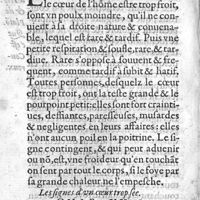 Le cœur de l'hõme estre trop froit,
sont vn poulx moindre, qu'il ne con-
uient à la droite nature & conuena-
ble, lequel est rare & tardif. Puis vne
petite respiration & soufle, rare, & tar-
diue. Rare s'oppose à souuent & fre-
quent, comme tardif à subit & hatif.
Toutes personnes, desquelz le cœur
est trop froit, ont la teste grande & le
pourpoint petit: elles sont fort crainti-
ues, deffiantes, paresseuses, musardes
& negligentes en leurs affaires: elles
n'ont aucun poil en la poitrine. Le si-
gne contingent, & qui peut aduenir
ou nõ, est, vne froideur qu'en touchãt
on sent par tout le corps, si le foye par
sa grande chaleur ne l'empesche.
Les signes d'un cœur trop sec.